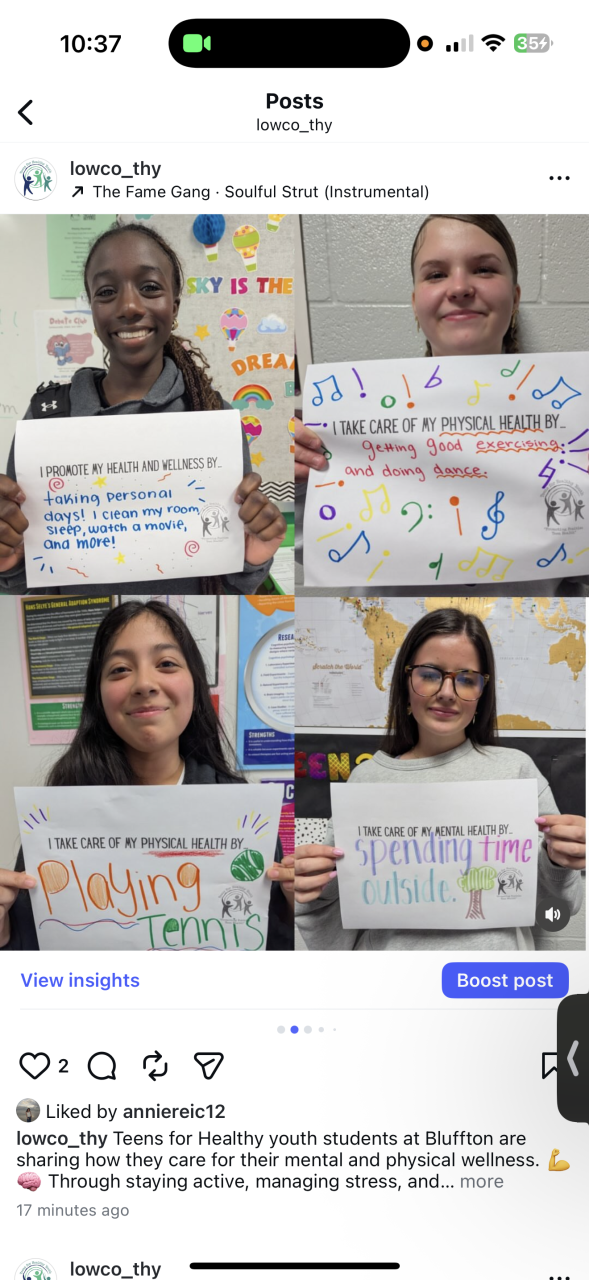 10:37
35
Posts
lowco_thy
lowco_thy
The Fame Gang · Soulful Strut (Instrumental)
SKY IS THE
Debate Club
DREA
I PROMOTE MY HEALTH AND WELLNESS BY...
taking personal
days! I clean my room,
sleep, watch a movie,
and more!
I TAKE CARE OF MY PHYSICAL HEALTH BY...
getting good exercising
and doing dance.
HANS SELYE'S GENERAL ADAPTION SYNDROME
STRENGTHS
I TAKE CARE OF MY PHYSICAL HEALTH BY...
Playing
Tennis
Scratch the World
I TAKE CARE OF MY MENTAL HEALTH BY...
spending time
outside.
View insights
Boost post
2
Liked by anniereic12
lowco_thy Teens for Healthy youth students at Bluffton are
sharing how they care for their mental and physical wellness. 💪
🧠 Through staying active, managing stress, and... more
17 minutes ago
lowco_thy